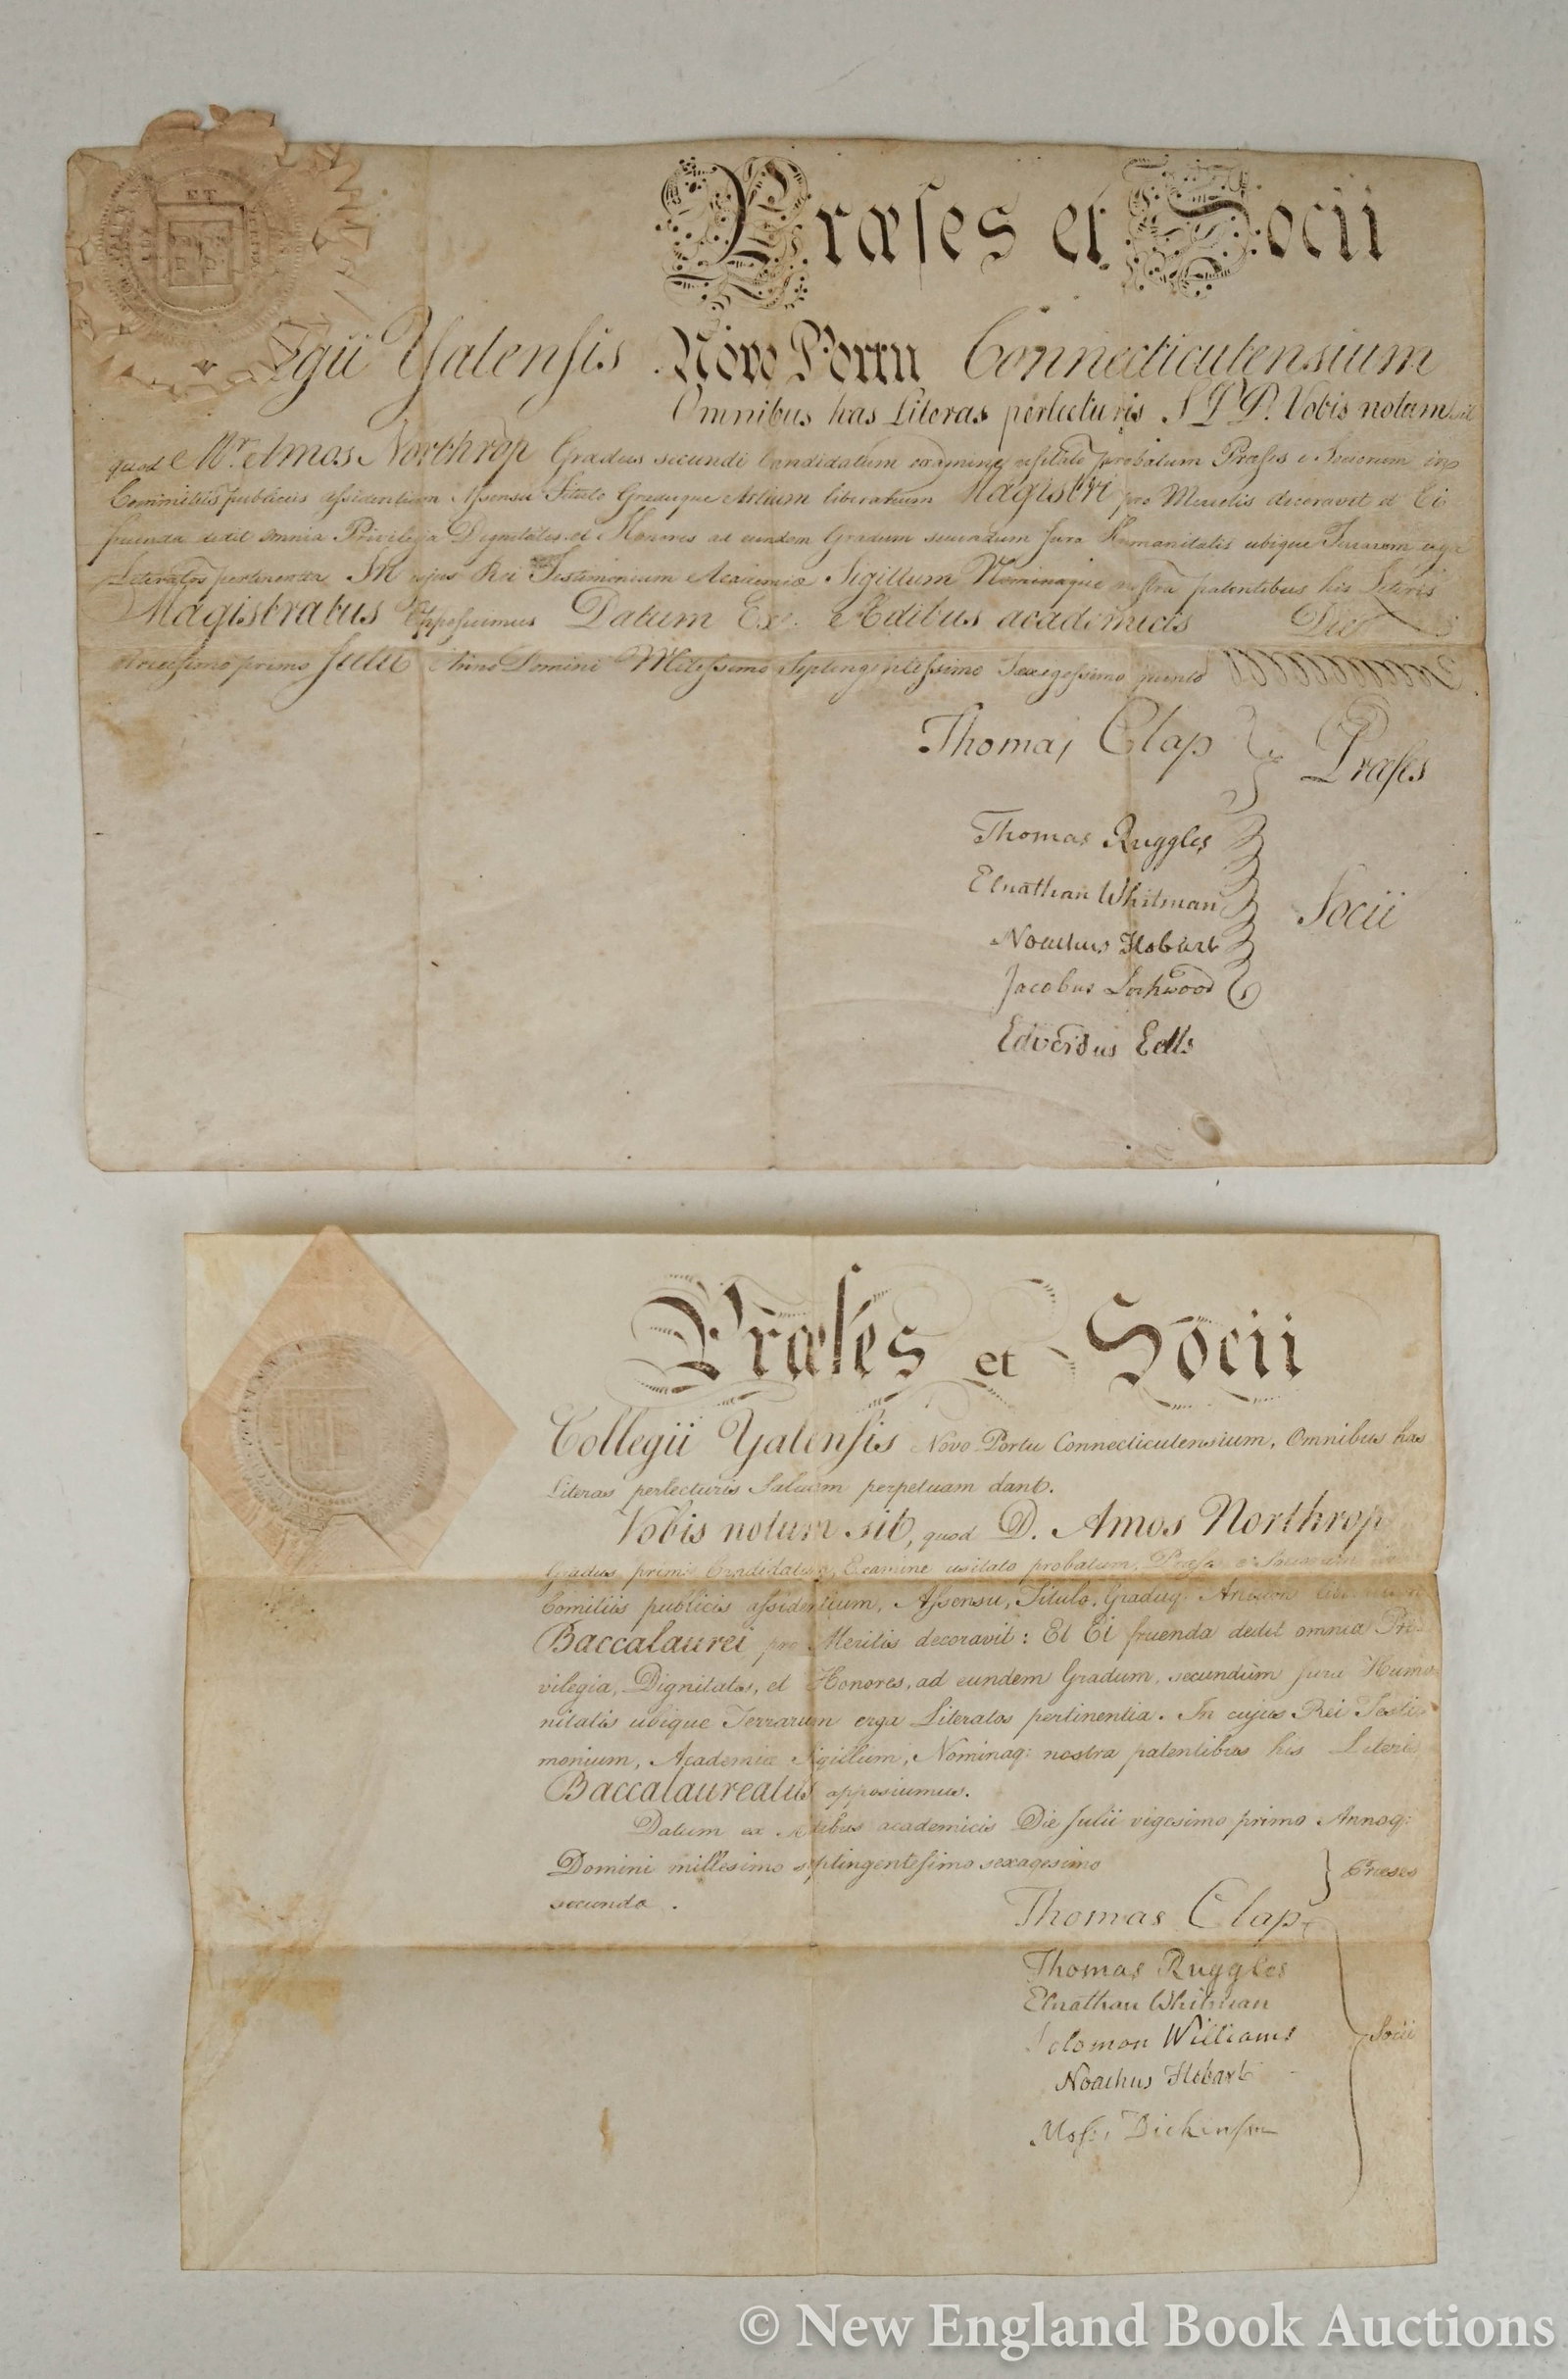 ET
Præses et Socii
egii Yalensis Novo Portu Connecticutensium
Omnibus has Literas perlecturis S. P. D. Vobis notum sit
quod Mr. Amos Northrop Gradus secundi Candidatum examine usitato probatum Præses e Sociorum in
Comitiis publicis assidentium Assensu Titulo Graduque Artium liberalium Magistri pro Meritis decoravit et Ei
fruenda dedit omnia Privilegia Dignitates et Honores ad eundem Gradum secundum Jura Humanitatis ubique Terrarum erga
Literatos pertinentia In cujus Rei Testimonium Academiæ Sigillum Nominaque nostra patentibus his Literis
Magistratus apposuimus Datum Ex Ædibus academicis Die
tricesimo primo Julii Anno Domini Milessimo Septingentessimo Sexagessimo quinto
Thomas Clap Præses
Thomas Ruggles
Elnathan Whitman
Socii
Noachus Hobart
Jacobus Lockwood
Edvardus Eells
Præses et Socii
Collegii Yalensis Novo Portu Connecticutensium, Omnibus has
Literas perlecturis Salutem perpetuam dant.
Vobis notum sit, quod D. Amos Northrop
Gradus primi Candidatum, Examine usitato probatum, Præses e Sociorum in
Comitiis publicis assidentium, Assensu, Titulo, Graduq: Artium
Baccalaurei pro Meritis decoravit: Et Ei fruenda dedit omnia Pri-
vilegia, Dignitates, et Honores, ad eundem Gradum, secundùm Jura Huma-
nitatis ubique Terrarum erga Literatos pertinentia. In cujus Rei Testi-
monium, Academiæ Sigillum, Nominaq: nostra patentibus his Literis
Baccalaureatus apposuimus.
Datum ex Ædibus academicis Die Julii vigesimo primo Annoq:
Domini millesimo septingentesimo sexagesimo
Præses
secundo.
Thomas Clap
Thomas Ruggles
Elnathan Whitman
Solomon Williams
Socii
Noachus Hobart
Moses Dickinson
© New England Book Auctions